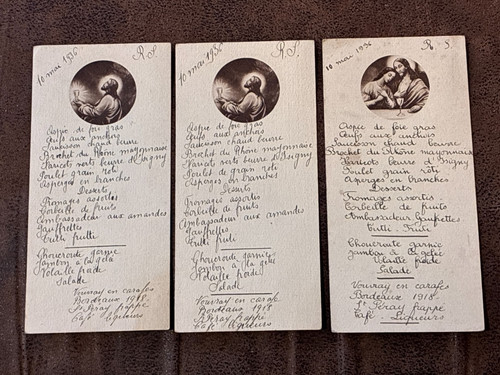 10 mai 1936
R. S.
Aspic de foie gras
Œufs aux anchois
Saucisson chaud beurre
Brochet du Rhône mayonnaise
Haricots verts beurre d'Isigny
Poulet grain rôti
Asperges en branches
Desserts
Fromages assortis
Corbeille de fruits
Ambassadeur aux amandes
Gauffrettes
Tutti frutti
Choucroute garnie
Jambon à la gelée
Volaille froide
Salade
Vouvray en carafes
Bordeaux 1918
St Péray frappé
Café Liqueurs
10 mai 1936
R. S.
Aspic de foie gras
Œufs aux anchois
Saucisson chaud beurre
Brochet du Rhône mayonnaise
Haricots verts beurre d'Isigny
Poulet de grain rôti
Asperges en branches
Desserts
Fromages assortis
Corbeille de fruits
Ambassadeur aux amandes
Gauffrettes
Tutti fruti
Choucroute garnie
Jambon à la gelée
Volaille froide
Salade
Vouvray en carafe
Bordeaux 1918
St Péray frappé
Café Liqueurs
10 mai 1936
R. S.
Aspic de foie gras
Œufs aux anchois
Saucisson chaud beurre
Brochet du Rhône mayonnaise
Haricots beurre d'Isigny
Poulet grain rôti
Asperges en branches
Desserts
Fromages assortis
Corbeille de fruits
Ambassadeur Gaufrettes
Tutti - Fruti
Choucroute garnie
Jambon à la gelée
Volaille froide
Salade
Vouvray en carafes
Bordeaux 1918
St Péray frappé
Café - Liqueurs